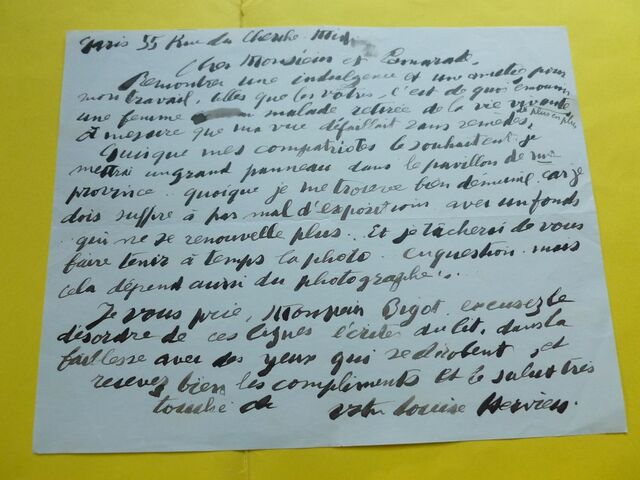 Paris 55 Rue du Cherche Midi
Cher Monsieur et Camarade,
Remontrer une indulgence et une amitié pour
mon travail, telles que les vôtres, c'est de quoi émouvoir
une femme malade retirée de la vie vivante
de plus en plus
à mesure que ma vue défaillait sans remèdes.
Puisque mes compatriotes le souhaitent je
mettrai un grand panneau dans le pavillon de ma
province. quoique je me trouve bien démunie car je
dois suffire à pas mal d'expositions avec un fonds
qui ne se renouvelle plus. Et je tâcherai de vous
faire tenir à temps la photo en question mais
cela dépend aussi du photographe.
Je vous prie, Monsieur Bigot, excusez le
désordre de ces lignes écrites du lit, dans la
faiblesse avec des yeux qui se dérobent et
recevez bien les compliments et le salut très
touché de votre Louise Hervieu.